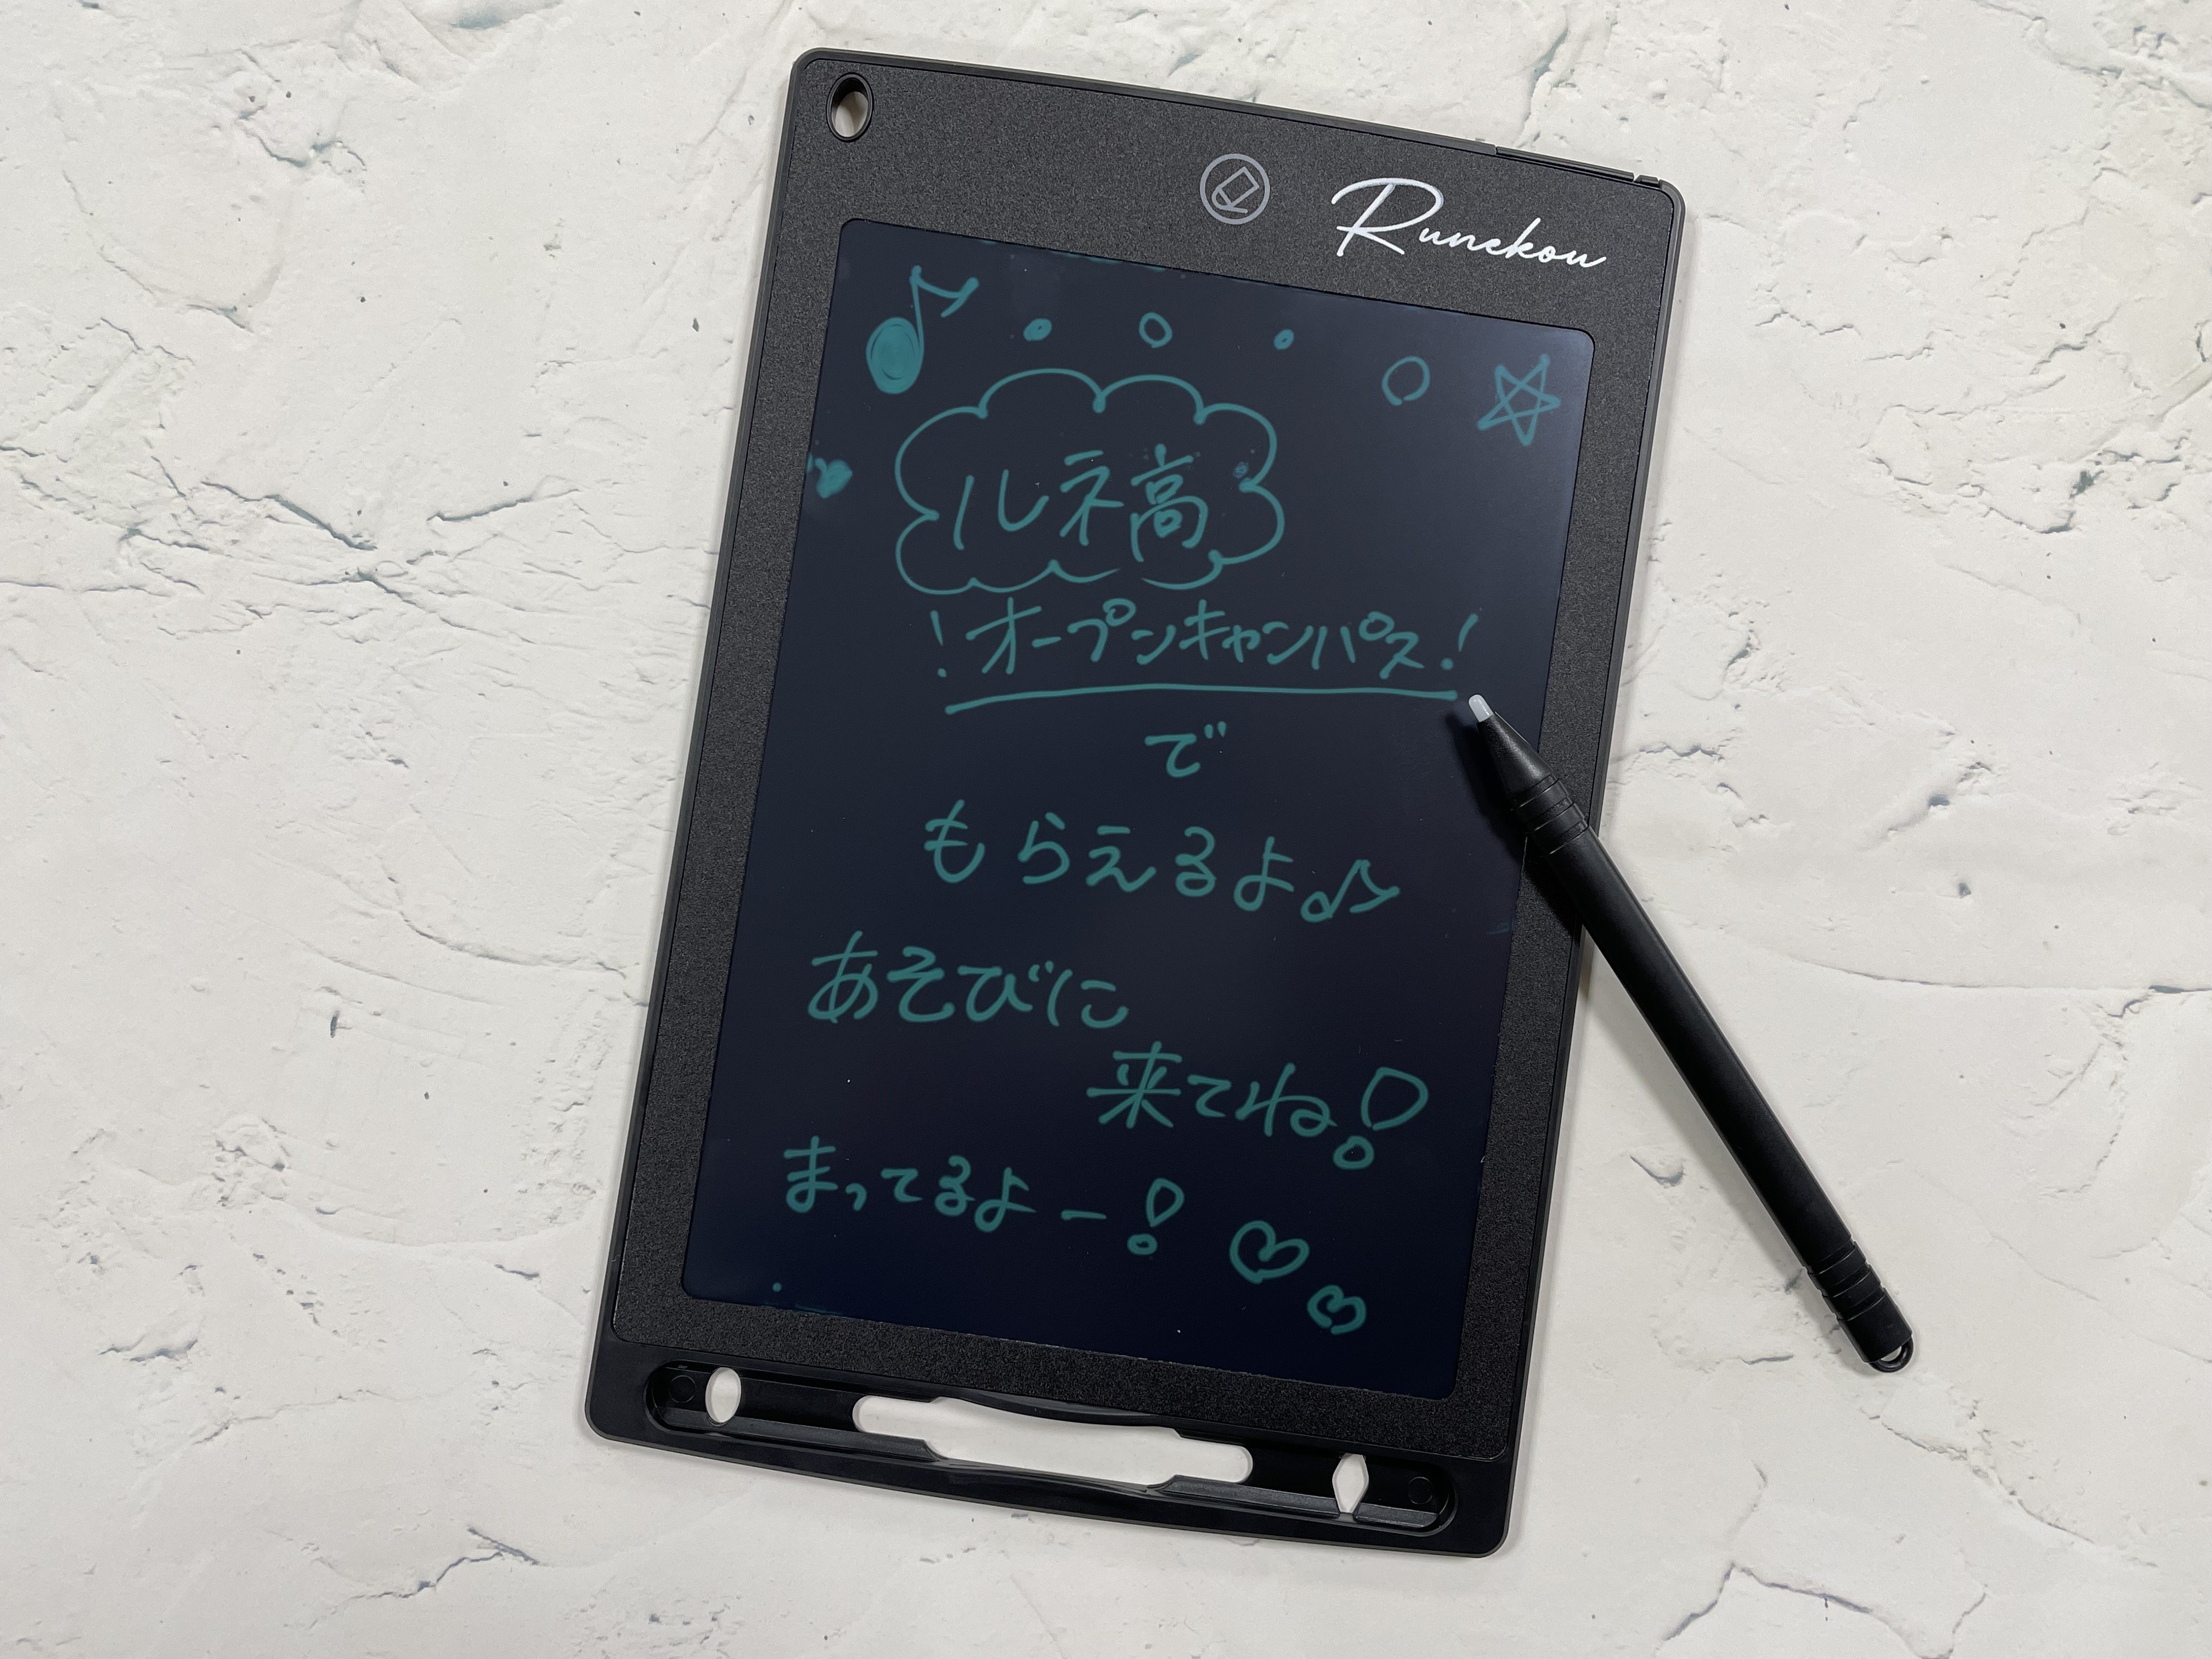 Runekou
ルネ高
！オープンキャンパス！
で
もらえるよ♪
あそびに
来てね！
まってるよー！♡♡